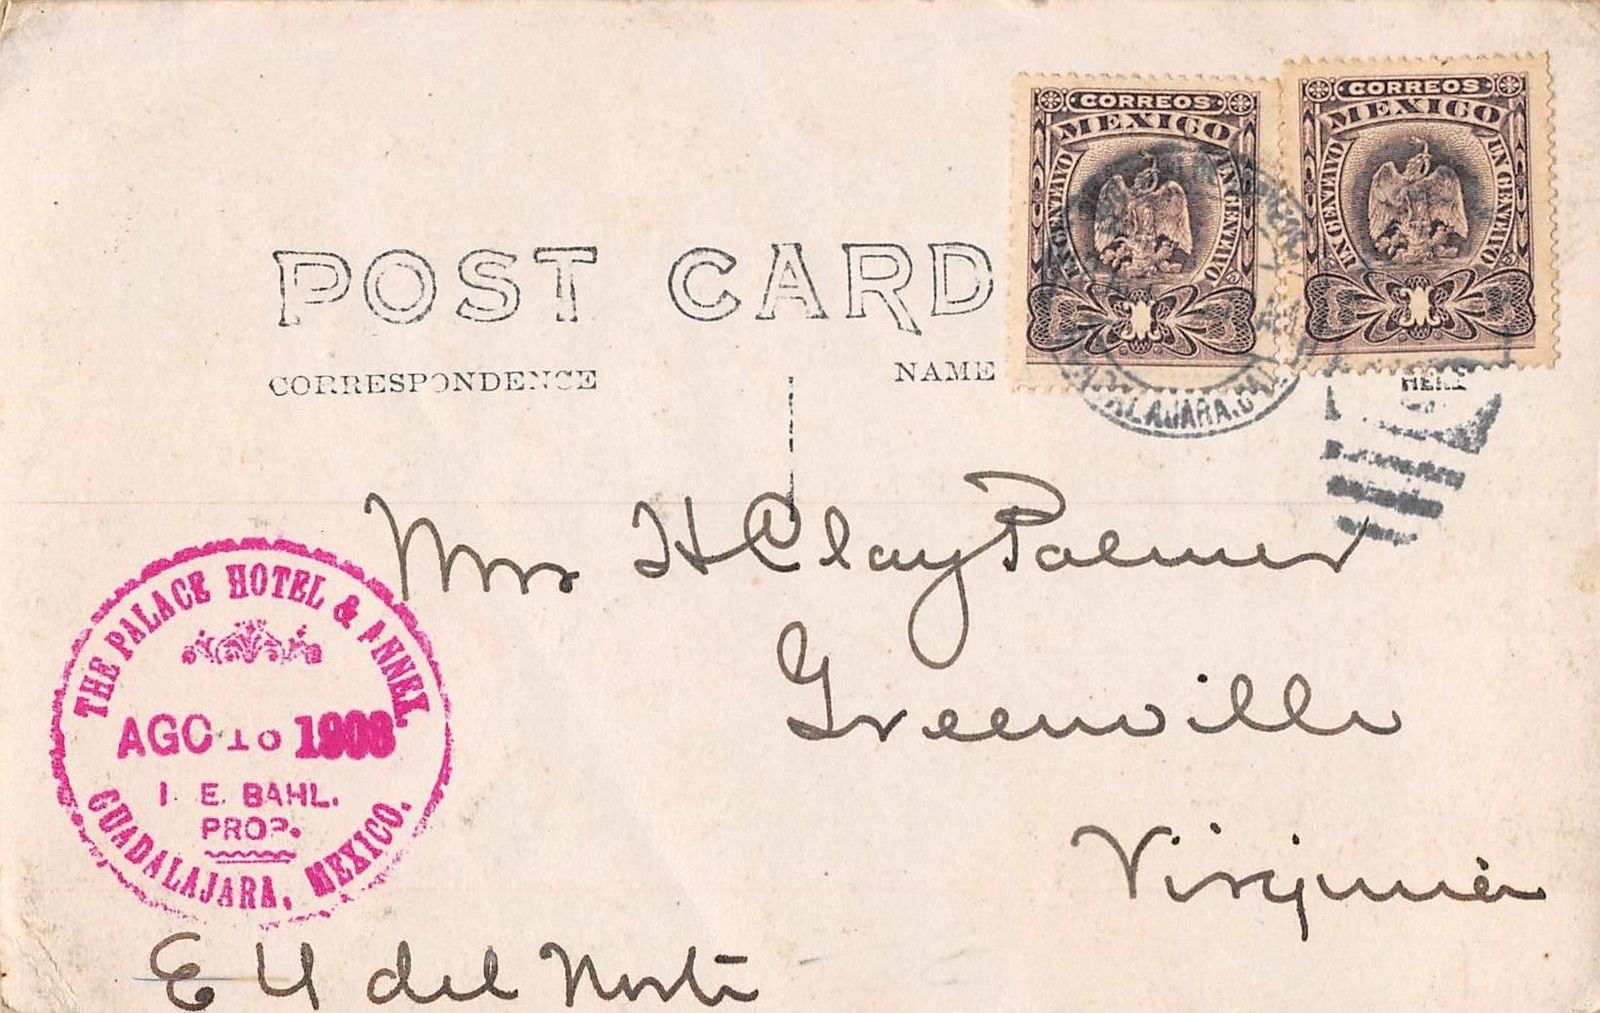 CORREOS
MEXICO
UN CENTAVO UN CENTAVO
CORREOS
MEXICO
UN CENTAVO UN CENTAVO
POST CARD
CORRESPONDENCE
NAME
HERE
GUADALAJARA.
Mrs H Clay Palmer
Greenville
Virginia
THE PALACE HOTEL & ANNEX.
AGO 1908
I. E. BAHL.
PROP.
GUADALAJARA, MEXICO.
E U del Norte